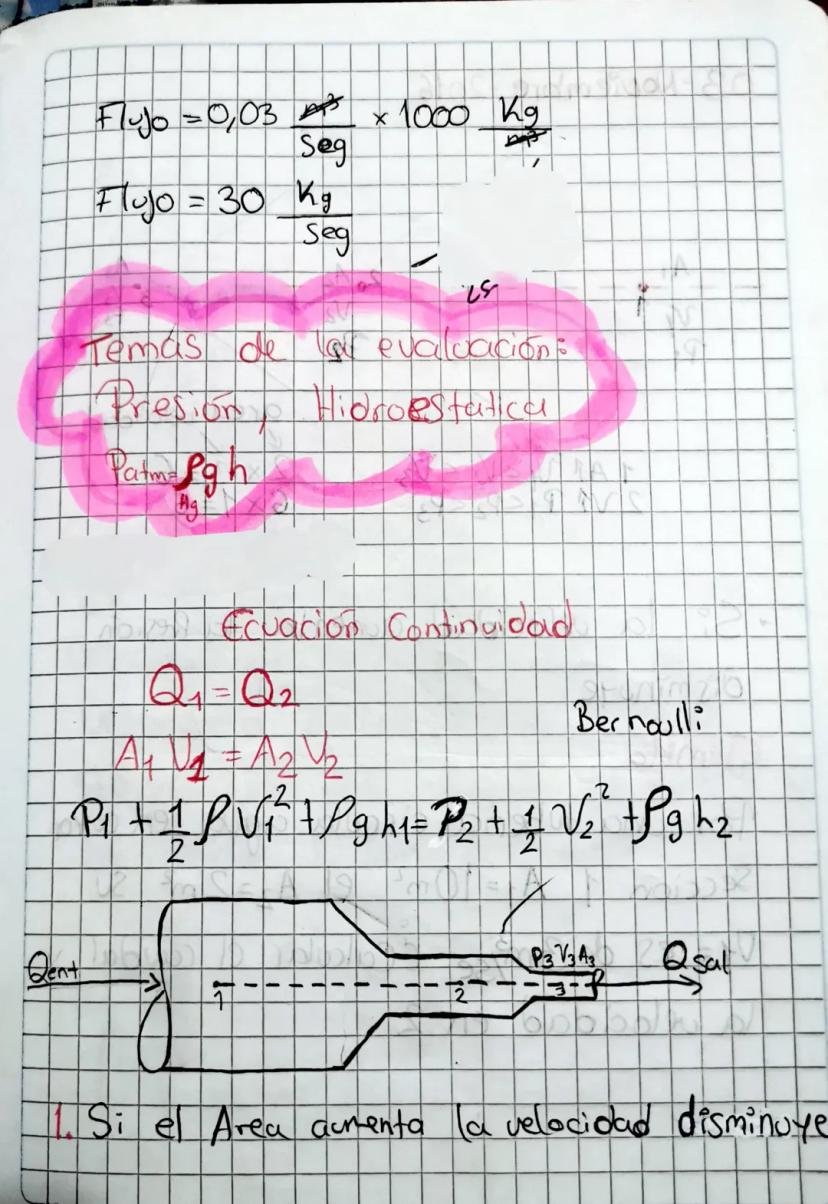 Flujo = 0,03 m³/Seg × 1000 Kg/m³
Flujo = 30 Kg/Seg
Temas de la evaluación:
Presión, Hidroestatica
Patm = ρgh
Hg
Ecuación Continuidad
Q1 = Q2
Bernoulli
A1 V1 = A2 V2
P1 + 1/2 ρ V1² + ρg h1 = P2 + 1/2 V2² + ρg h2
P3 V3 A3
Qent
Qsal
1 2 3
1. Si el Area aumenta la velocidad disminuye